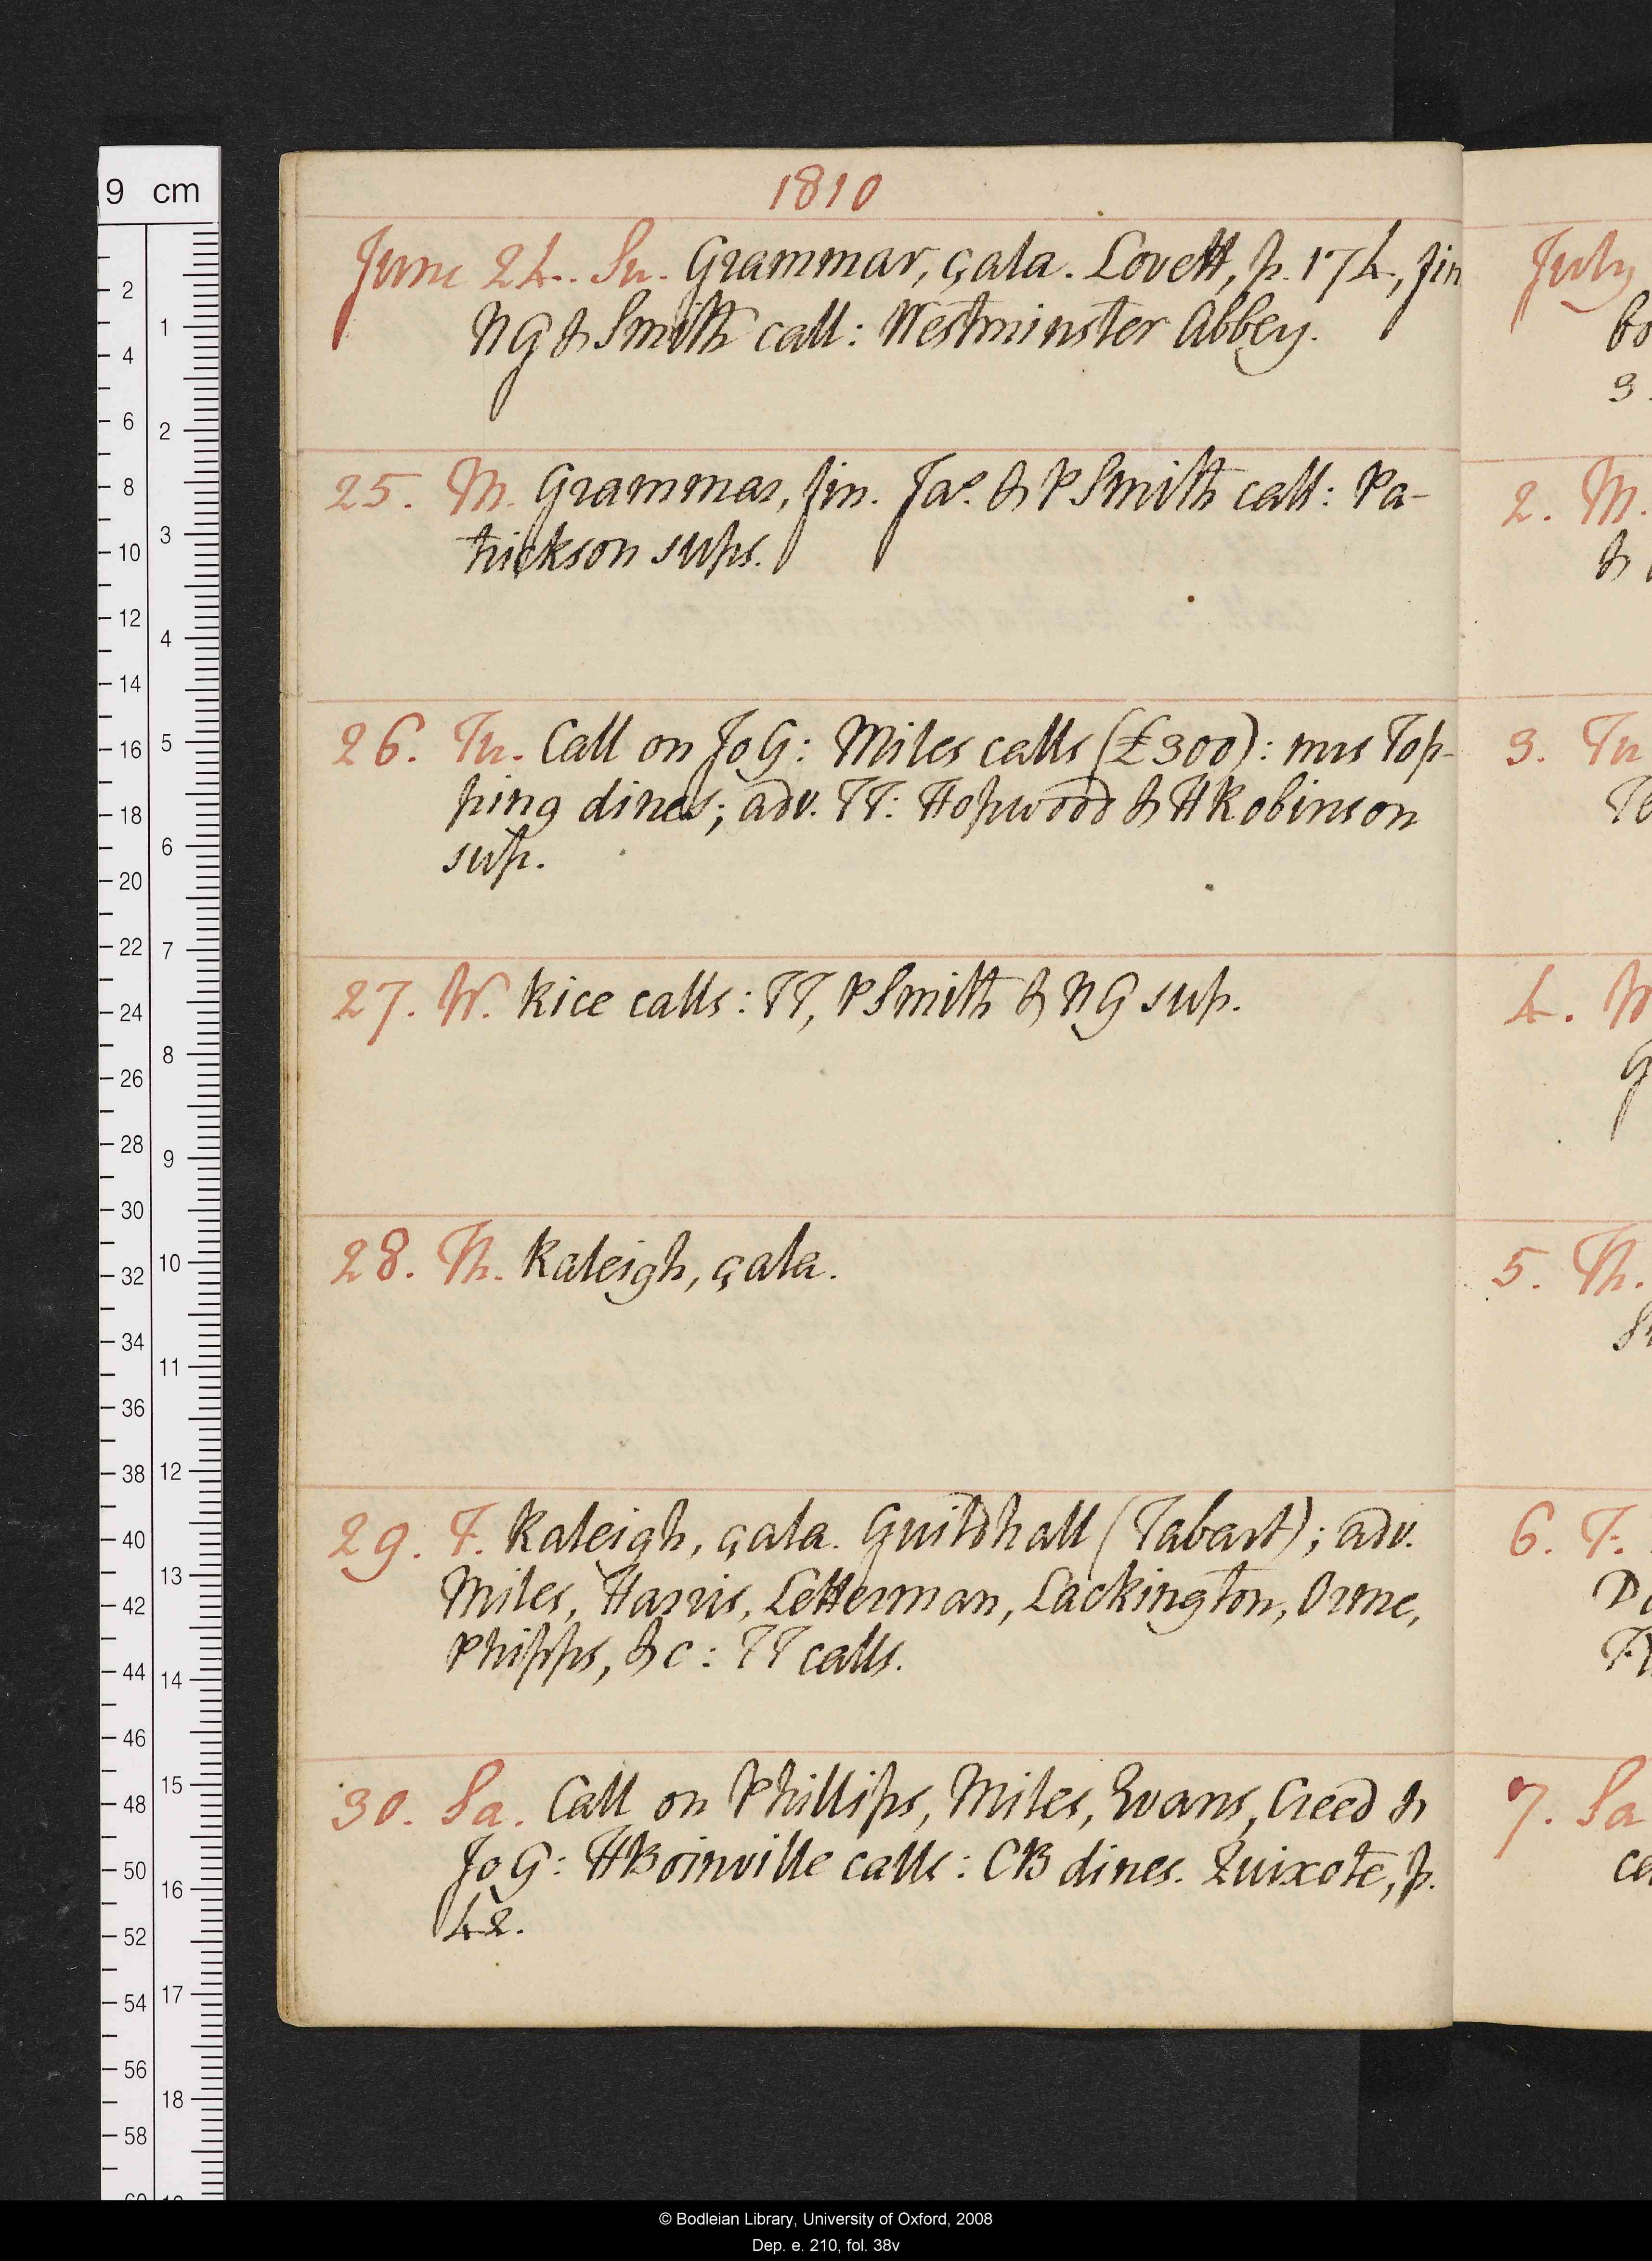 1810
June 24. Su. Grammar, çala. Lovett, p. 174, fin
NG & Smith call: Westminster Abbey.
25. M. Grammar, fin. Jas. & P Smith call: Pa-
trickson sups.
26. Tu. Call on JoG: Miles calls (£300): mrs Top-
ping dines; adv. TT: Hopwood & HRobinson
sup.
27. W. Rice calls: TT, P Smith & NG sup.
28. Th. Raleigh, çala.
29. F. Raleigh, çala. Guildhall (Tabart); adv.
Miles, Harris, Letterman, Lackington, Orme,
Phipps, &c: TT calls.
30. Sa. Call on Phillips, Miles, Evans, Creed &
JoG: HBoinville calls: CB dines. Quixote, p.
42.
July
bo
3.
2. M.
&
3. Tu
4. W
G
5. Th.
6. F.
7. Sa
ca
9 cm
2
4
6
8
10
12
14
16
18
20
22
24
26
28
30
32
34
36
38
40
42
44
46
48
50
52
54
56
58
60
1
2
3
4
5
6
7
8
9
10
11
12
13
14
15
16
17
18
© Bodleian Library, University of Oxford, 2008
Dep. e. 210, fol. 38v